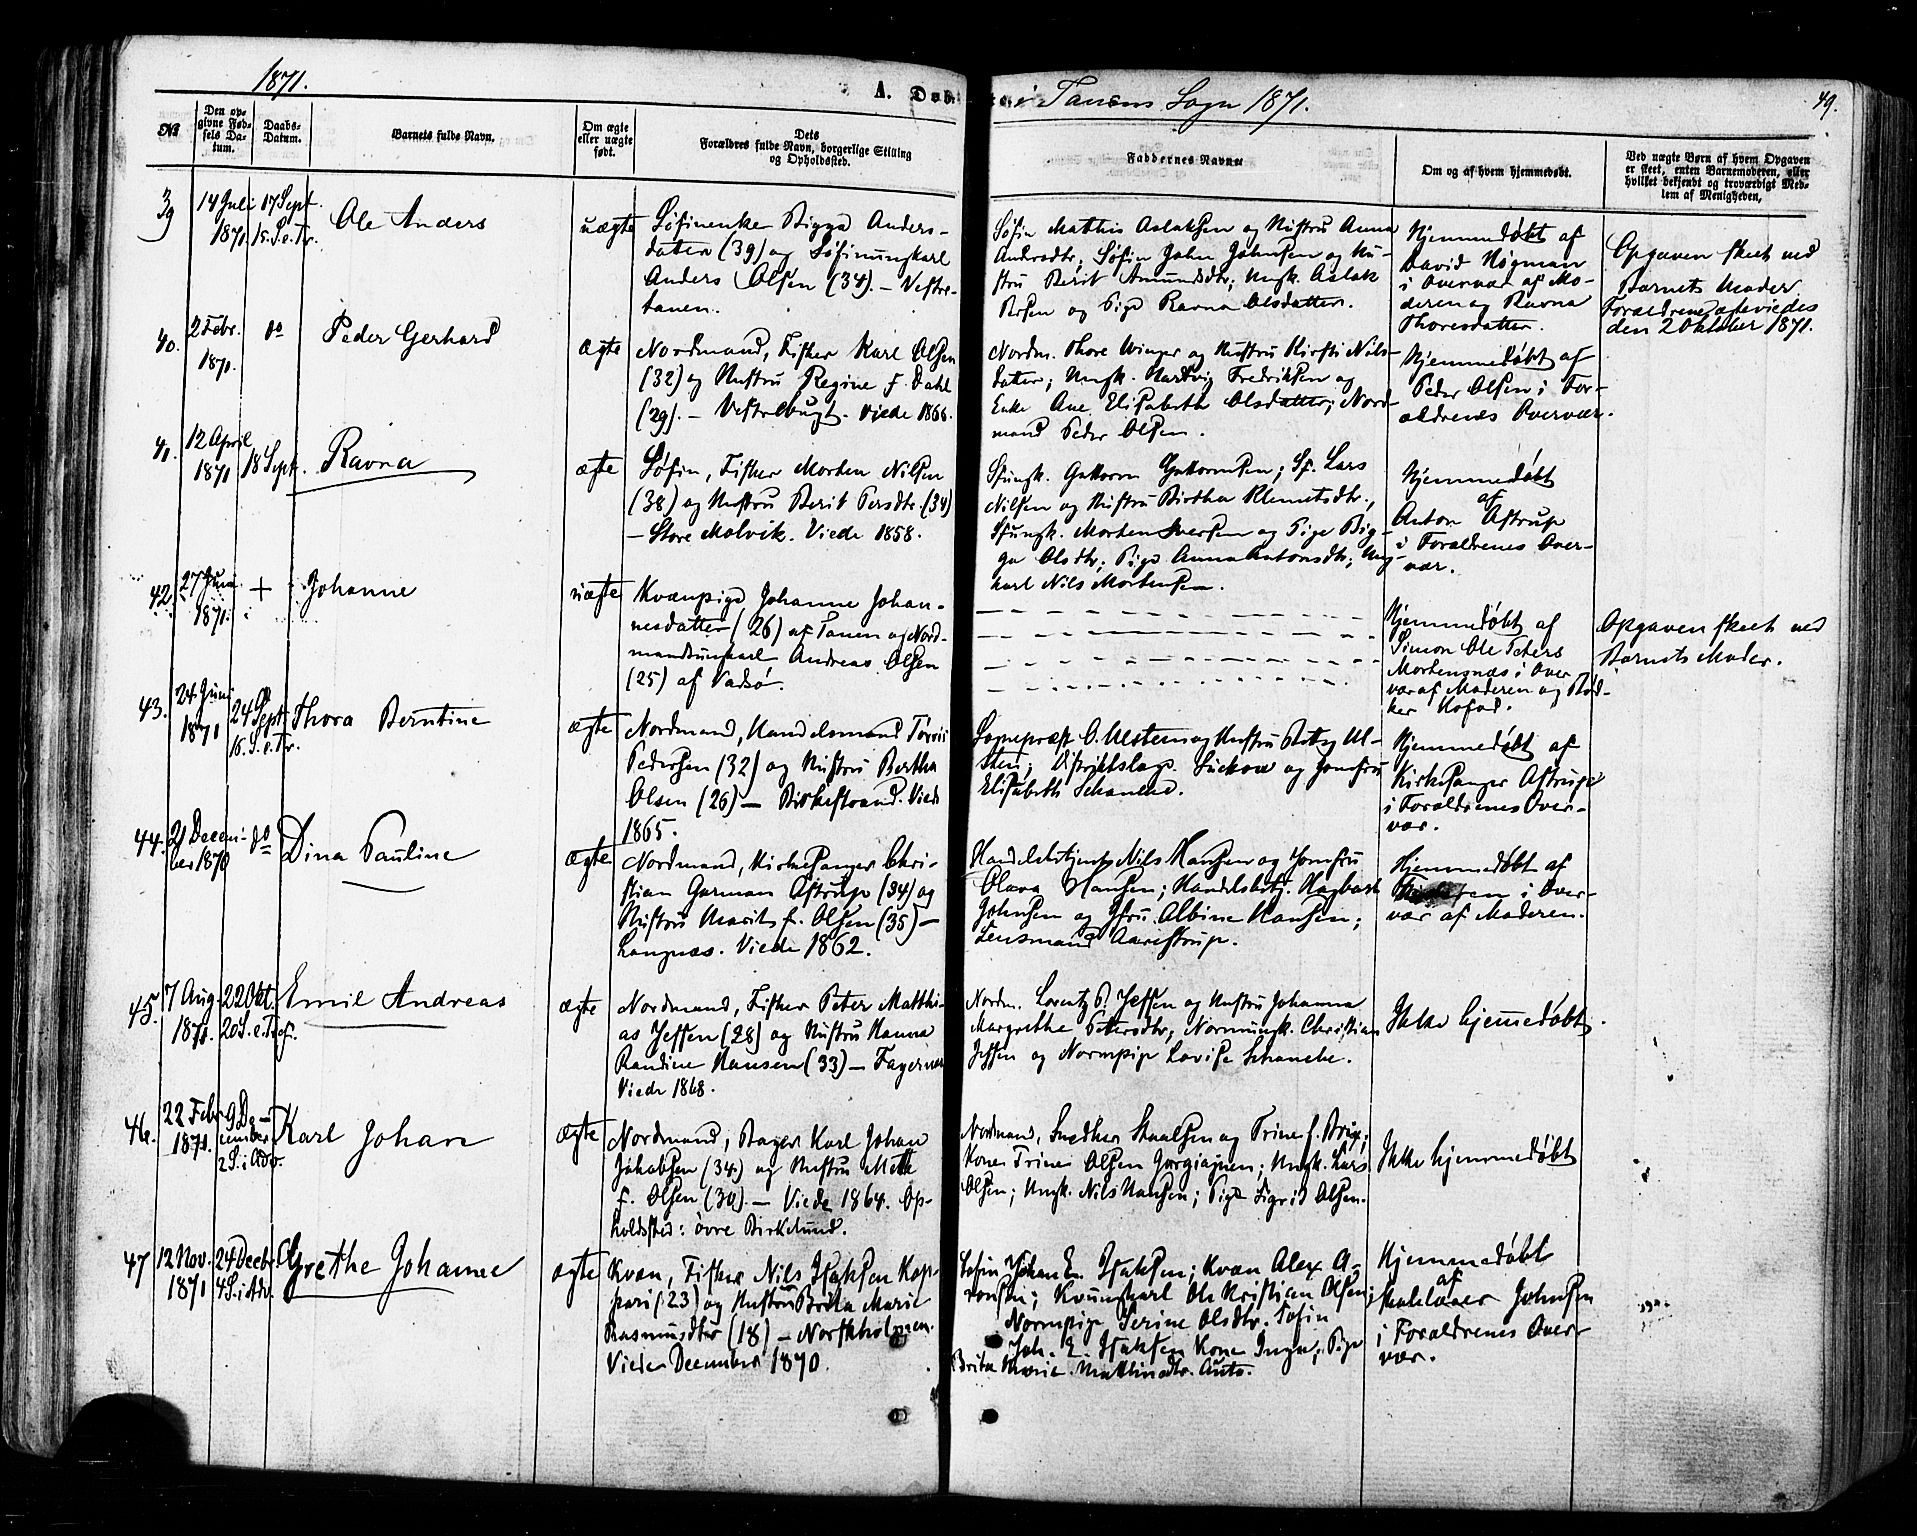 1871.
A. Døb
i Tanens Sogn 1871.
49.
No
Den op-
givne Fød-
sels Da-
tum.
Daabs-
Datum.
Barnets fulde Navn.
Om ægte
eller uægte
født.
Dets
Forældres fulde Navn, borgerlige Stilling
og Opholdssted.
Faddernes Navne
Om og af hvem hjemmedøbt.
Ved uægte Børn af hvem Opgaven
er skeet, enten Barnemoderen, eller
hvilket bekjendt og troværdigt Med-
lem af Menigheden.
39
14 Juli
1871
17 Sept.
15. S. e. Tr.
Ole Anders
uægte
Søfinenke Bigga Anders-
datter (39) og Søfinungkarl
Anders Olsen (34). — Vestre-
tanen.
Søfin Mathis Aslaksen og Hustru Anna
Andersdtr; Søfin John Johnsen og Hu-
stru Berit Amundsdtr; Ungk. Aslak
og Pige Ravna Olsdatter.
Hjemmedøbt af
David Högman
i Overvær af Mo-
deren og Ravna
Thoresdatter.
Opgaven skeet ved
Barnets Moder
Forældrene ægteviedes
den 2 Oktober 1871.
40.
2 Febr.
1871.
do
Peder Gerhard
ægte
Nordmand, Fisker Karl Olsen
(32) og Hustru Regine f. Dahl
(29). — Vestrebugt. Viede 1866.
Nordm. Thore Winger og Hustru Kirsti Nils-
datter; Ungk. Hartvig Fredriksen og
Enke Ane Elisabeth Olsdatter; Nord-
mand Peder Olsen.
Hjemmedøbt af
Peder Olsen i For-
ældrenes Overvær.
41.
12 April
1871
18 Sept.
Ravna
ægte
Søfin, Fisker Morten Nilsen
(38) og Hustru Berit Persdtr. (34)
— Store Molvik. Viede 1858.
Sfungk. Guttorm Guttormsen; Sf. Lars
Nilsen og Hustru Birtha Klemetsdtr.,
Sfungk. Morten Iversen og Pige Big-
ga Olsdtr; Pige Anna Antonsdtr; Ung-
karl Nils Mortensen.
Hjemmedøbt
af
Anton Astrup
i Forældrenes Over-
vær.
42.
27 Juni
1871.
+
Johanne
uægte
Kvænpige Johanne Johan-
nesdatter (26) af Tanen og Nord-
mandsungkarl Andreas Olsen
(25) af Vadsø.
Hjemmedøbt af
Simon Ole Peters
Mortensnæs i Over
vær af Moderen og Bød-
ker Kofod.
Opgaven skeet ved
Barnets Moder.
43.
24 Juni
1871
24 Sept.
16. S. e. Tr.
Thora Berntine
ægte
Nordmand, Handelsmand
Pedersen (32) og Hustru Bertha
Olsen (26) — Birkestrand. Viede
1865.
Sognepræst O. Ulsten og Hustru Betty Ul-
sten; Distriktslæge Suckow og Jomfru
Elisabeth Schancke.
Hjemmedøbt af
Kirkesanger Astrup
i Forældrenes Over-
vær.
44.
21 Decem-
ber 1870
do
Dina Pauline
ægte
Nordmand, Kirkesanger Chri-
stian Garman Astrup (34) og
Hustru Marit f. Olsen (35) —
Langnæs. Viede 1862.
Handelsbetjent Nils Hansen og Jomfru
Olava Hansen; Handelsbetj. Hagbart
Johnsen og Jfru. Albine Hansen;
Lensmand Aarestrup.
Hjemmedøbt af
Faderen i Over-
vær af Moderen.
45.
7 Aug.
1871.
22 Okt.
20 S. e. Tref.
Emil Andreas
ægte
Nordmand, Fisker Peter Matthi-
as Jessen (28) og Hustru Hanna
Randine Hansen (33) — Fagernæs
Viede 1868.
Nordm. Lorentz P. Jessen og Hustru Johanna
Margrethe Petersdtr; Normungk. Christian
Jessen og Normpige Lovise Schancke.
Ikke hjemmedøbt.
46.
22 Febr.
1871.
9 De-
cember
2 S. i Adv.
Karl Johan
ægte
Nordmand, Bager Karl Johan
Jakobsen (34) og Hustru Mette
f. Olsen (30). — Viede 1864. Op-
holdssted: övre Birkelund.
Nordmand, Snedker Skaalsen og Trine f. ;
Kone Trine Olsen ; Ungk. Lars
Olsen; Ungk. Nils Hansen; Pige Sigrid Olsen.
Ikke hjemmedøbt
47
12 Nov.
1871
24 Decbr.
4 S. i Adv.
Grethe Johanne
ægte
Kvæn, Fisker Nils Isaksen Kop-
pari (23) og Hustru Brita Marie
Rasmusdtr (18) — Norskholmen.
Viede December 1870.
Søfin Johan E. Isaksen; Kvæn Alex A-
ronsen; Kvungkarl Ole Kristian Olsen;
Normpige Serine Olsdtr. Søfin
Joh. E. Isaksen Kone Inga; Pige
Brita Marie
Hjemmedøbt
af
Skolelærer Johnsen
i Forældrenes Over-
vær.